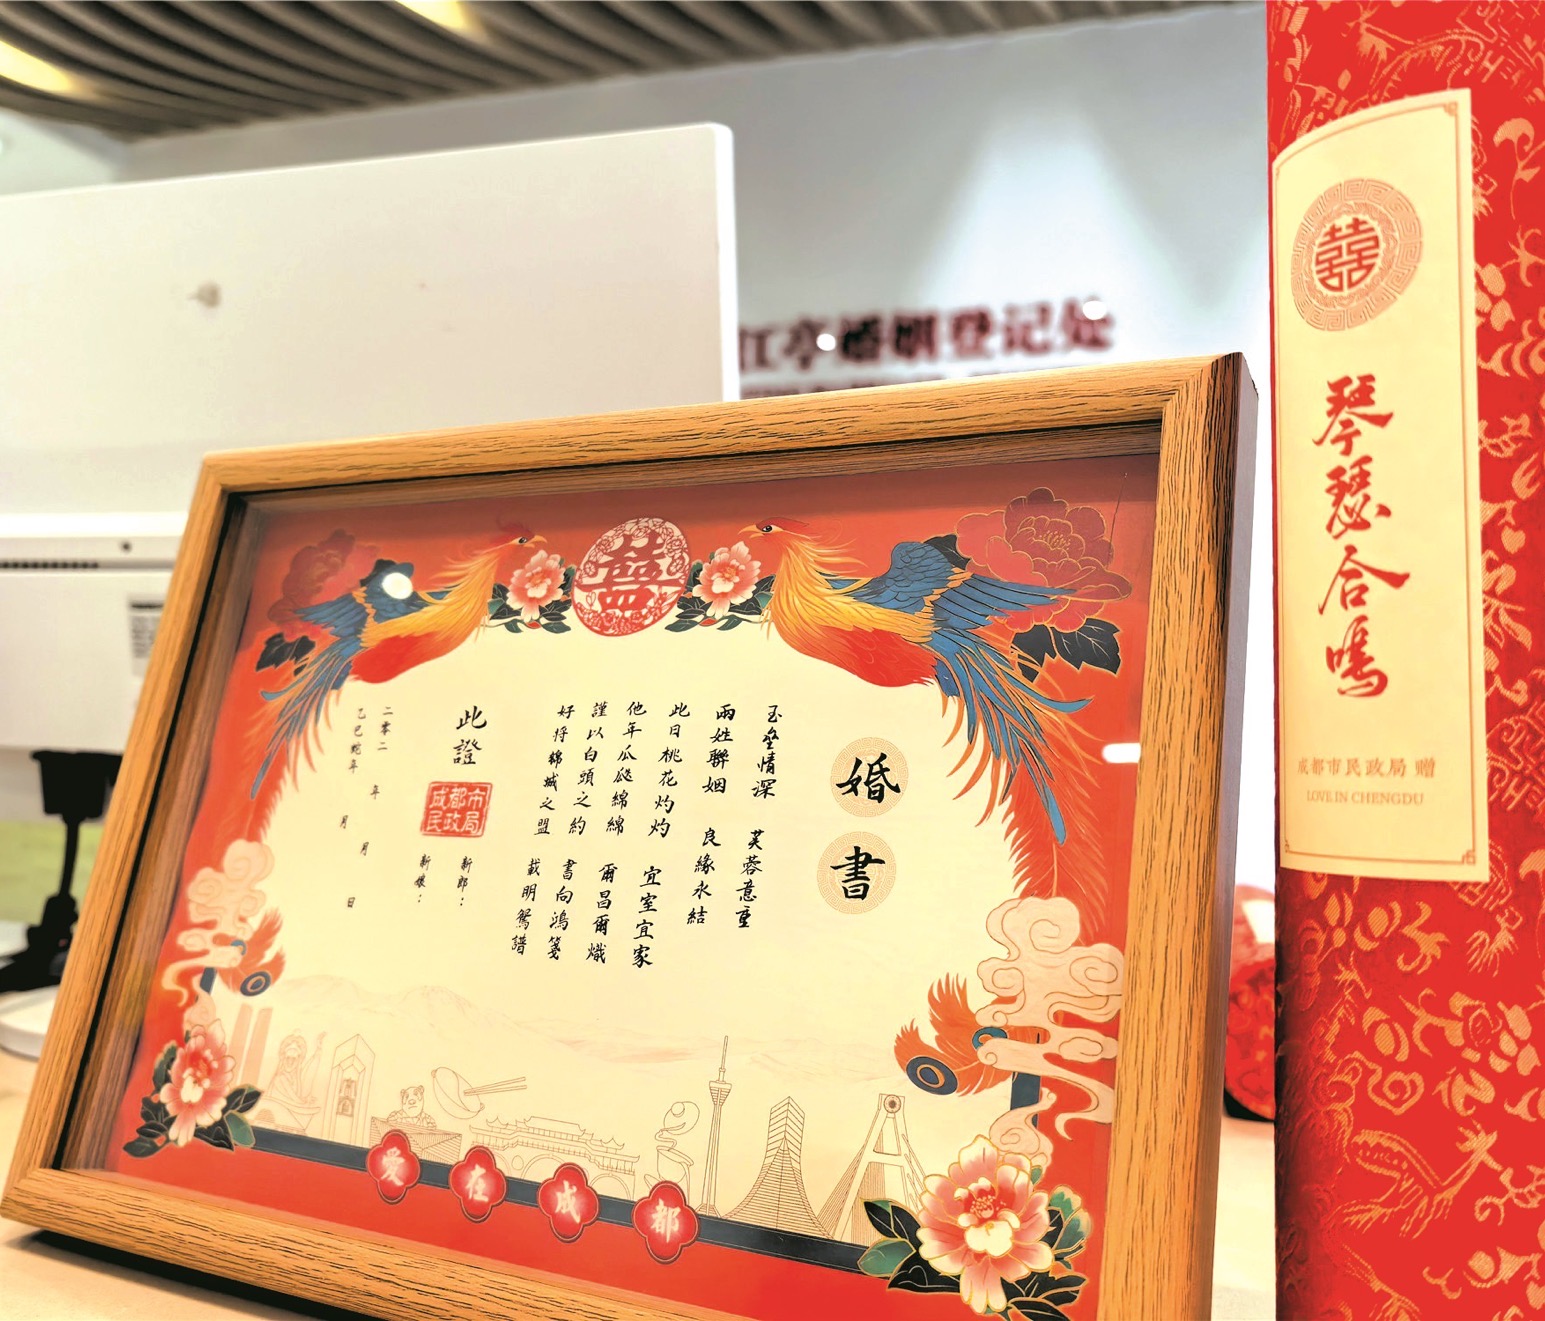 江亭婚姻登记处
囍
婚書
玉壘情深 芙蓉意重
兩姓聯姻 良緣永結
此日桃花灼灼 宜室宜家
他年瓜瓞綿綿 爾昌爾熾
謹以白頭之約 書向鴻箋
好將錦城之盟 載明鴛譜
此證
成都市民政局
新郎:
新娘:
二零二 年 月 日
乙巳蛇年 月
愛在成都
囍
琴瑟合鳴
成都市民政局 赠
LOVE IN CHENGDU